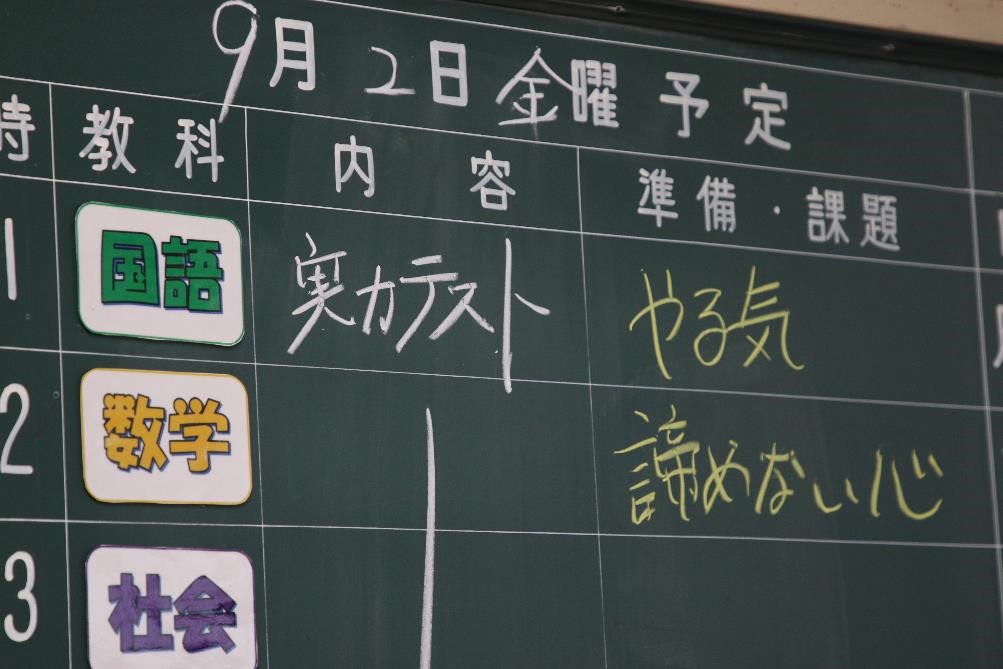 9月2日金曜予定
時 教科 内容 準備・課題
1 国語 実力テスト やる気
2 数学 諦めない心
3 社会